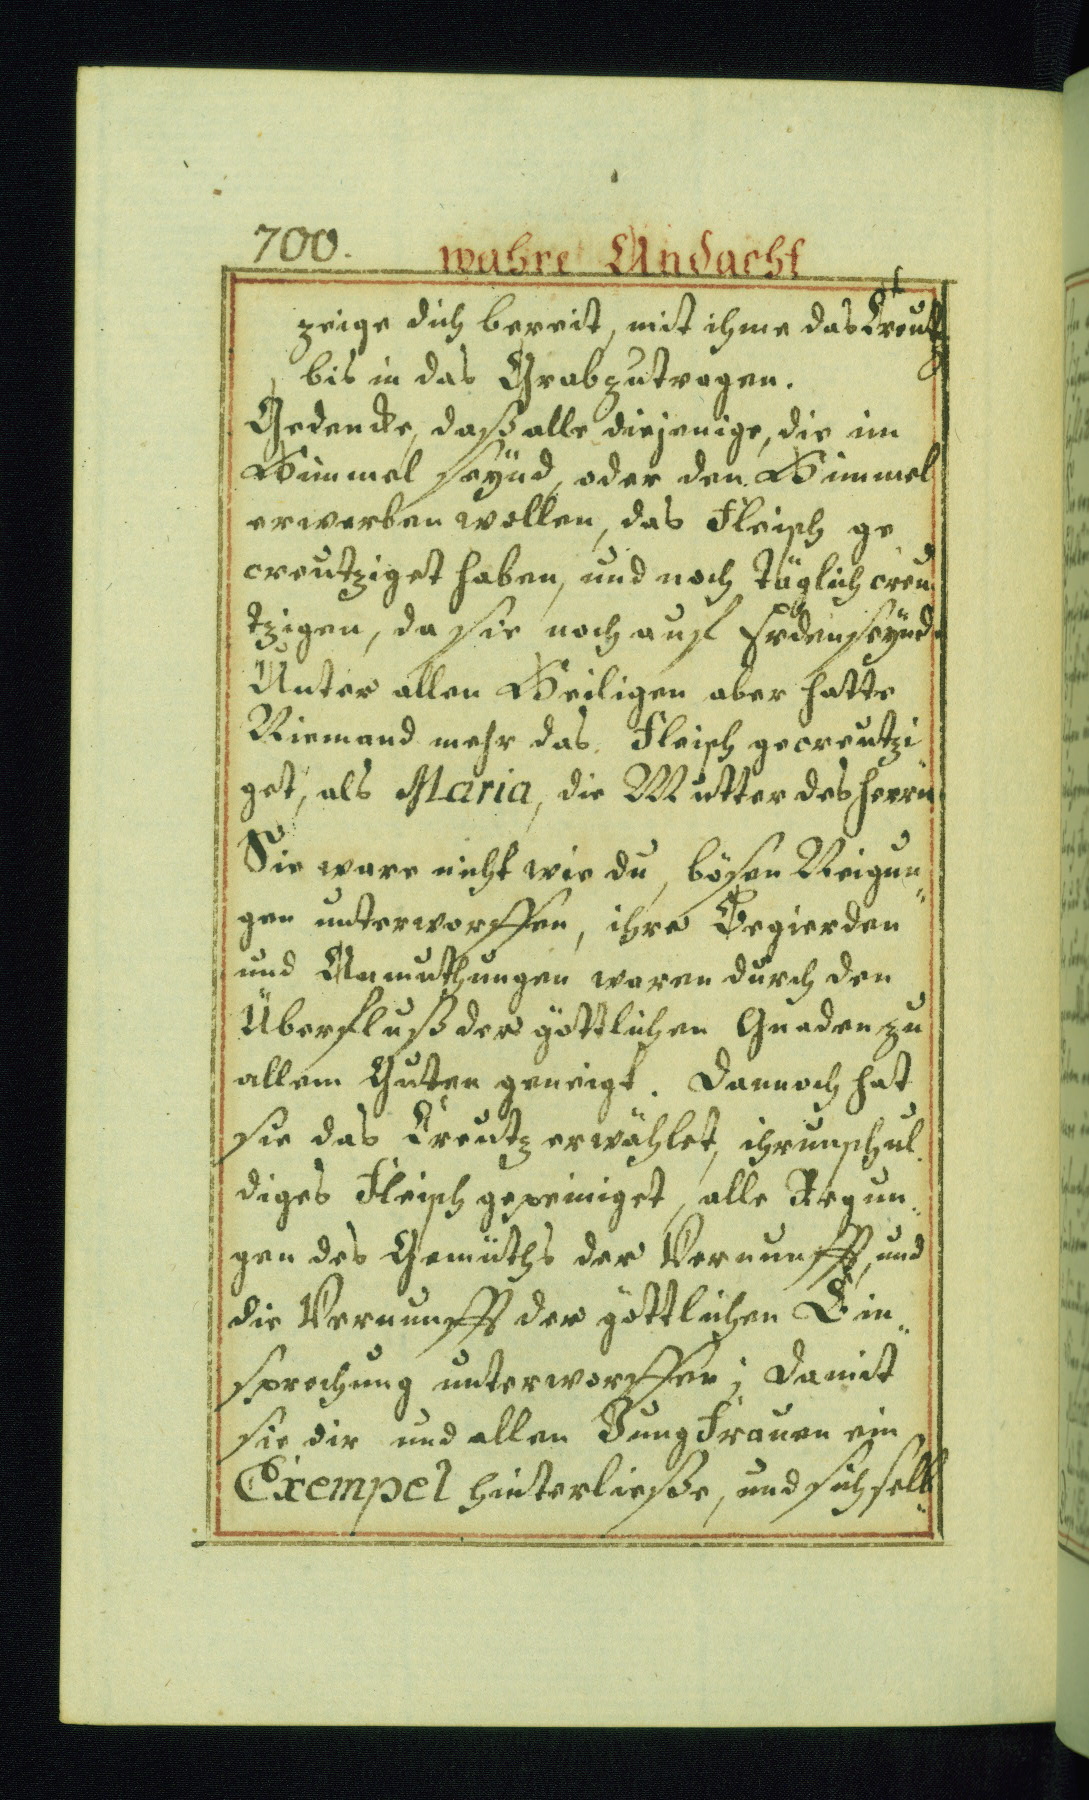 700. wahre Andacht
zeige dich bereit, mit ihme das Creutz
bis in das Grab zutragen.
Gedencke, daß alle diejenige, die im
Himmel seynd, oder den Himmel
erwerben wollen, das Fleisch ge
creutziget haben, und noch täglich creu
tzigen, da sie noch auf Erden seynd.
Unter allen Heiligen aber hatte
Niemand mehr das Fleisch gecreutzi
get, als Maria, die Mutter des Herrn
Sie ware nicht wie du, bösen Neigun„
gen unterworffen, ihre Begierden
und Anmuthungen waren durch den
Überfluß der göttlichen Gnaden zu
allem Guten geneigt. Dannoch hat
sie das Creutz erwählet, ihr unschul„
diges Fleisch gepeiniget, alle Regun„
gen des Gemüths der Vernunfft, und
die Vernunfft der göttlichen Ein„
sprechung unterworffen; damit
sie dir und allen Jungfrauen ein
Exempel hinterliesse, und sich selb„